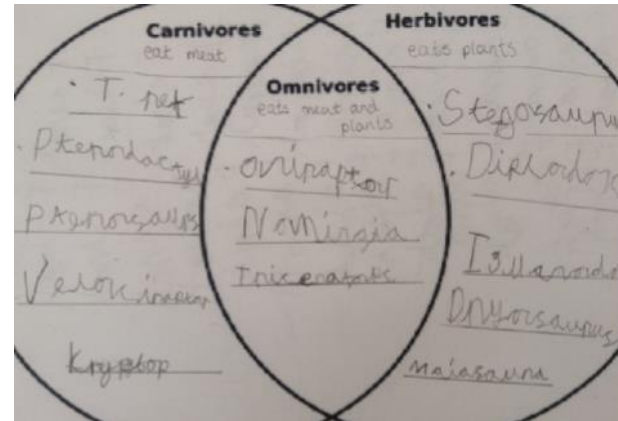 Carnivores
eat meat
• T. rex
• Pterodactyl
Pterorsaurs
Velociraptor
Kryptop
Omnivores
eats meat and
plants
• oviraptor
Nomingia
Triceratops
Herbivores
eats plants
• Stegosauru
• Diplodoc
Dryorsaurus
Maiasaura